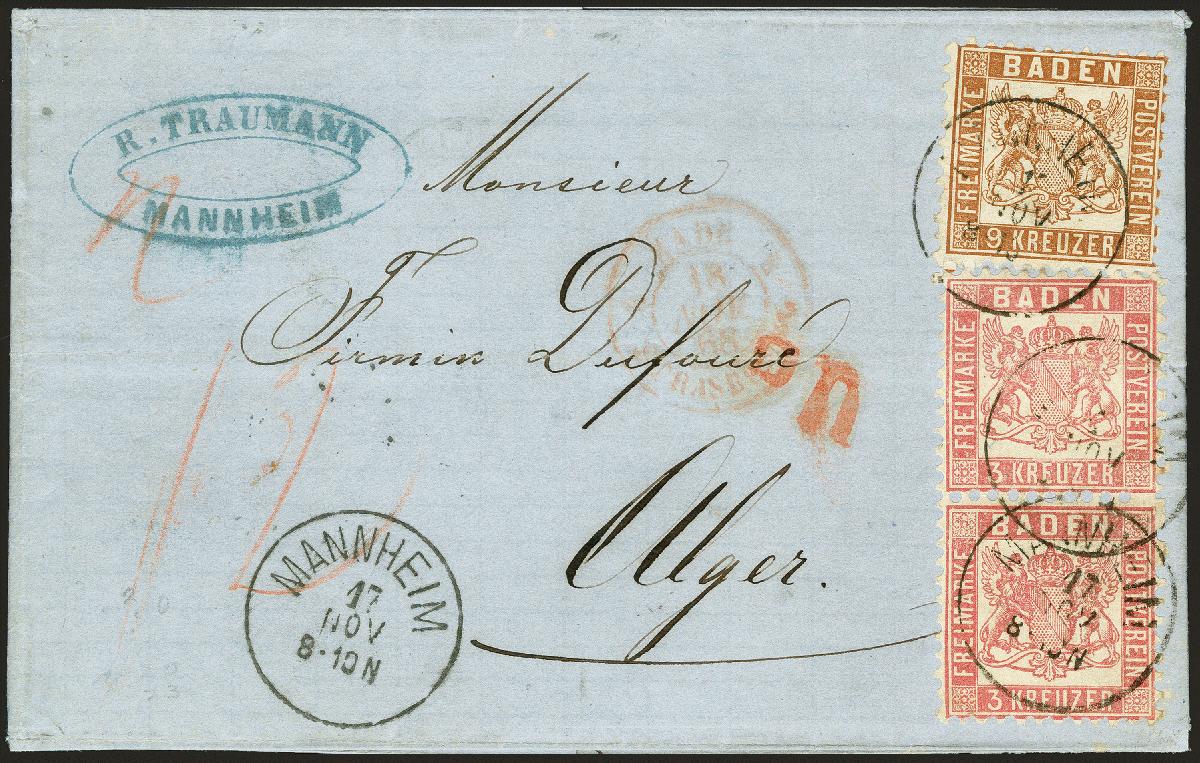 R. TRAUMANN
MANNHEIM
Monsieur
Firmin Dufourc
Alger.
12
MANNHEIM
17
NOV
8-10N
18
BADEN
FREIMARKE
POSTVEREIN
9 KREUZER
NOV
BADEN
FREIMARKE
POSTVEREIN
3 KREUZER
NOV
BADEN
FREIMARKE
POSTVEREIN
3 KREUZER
17